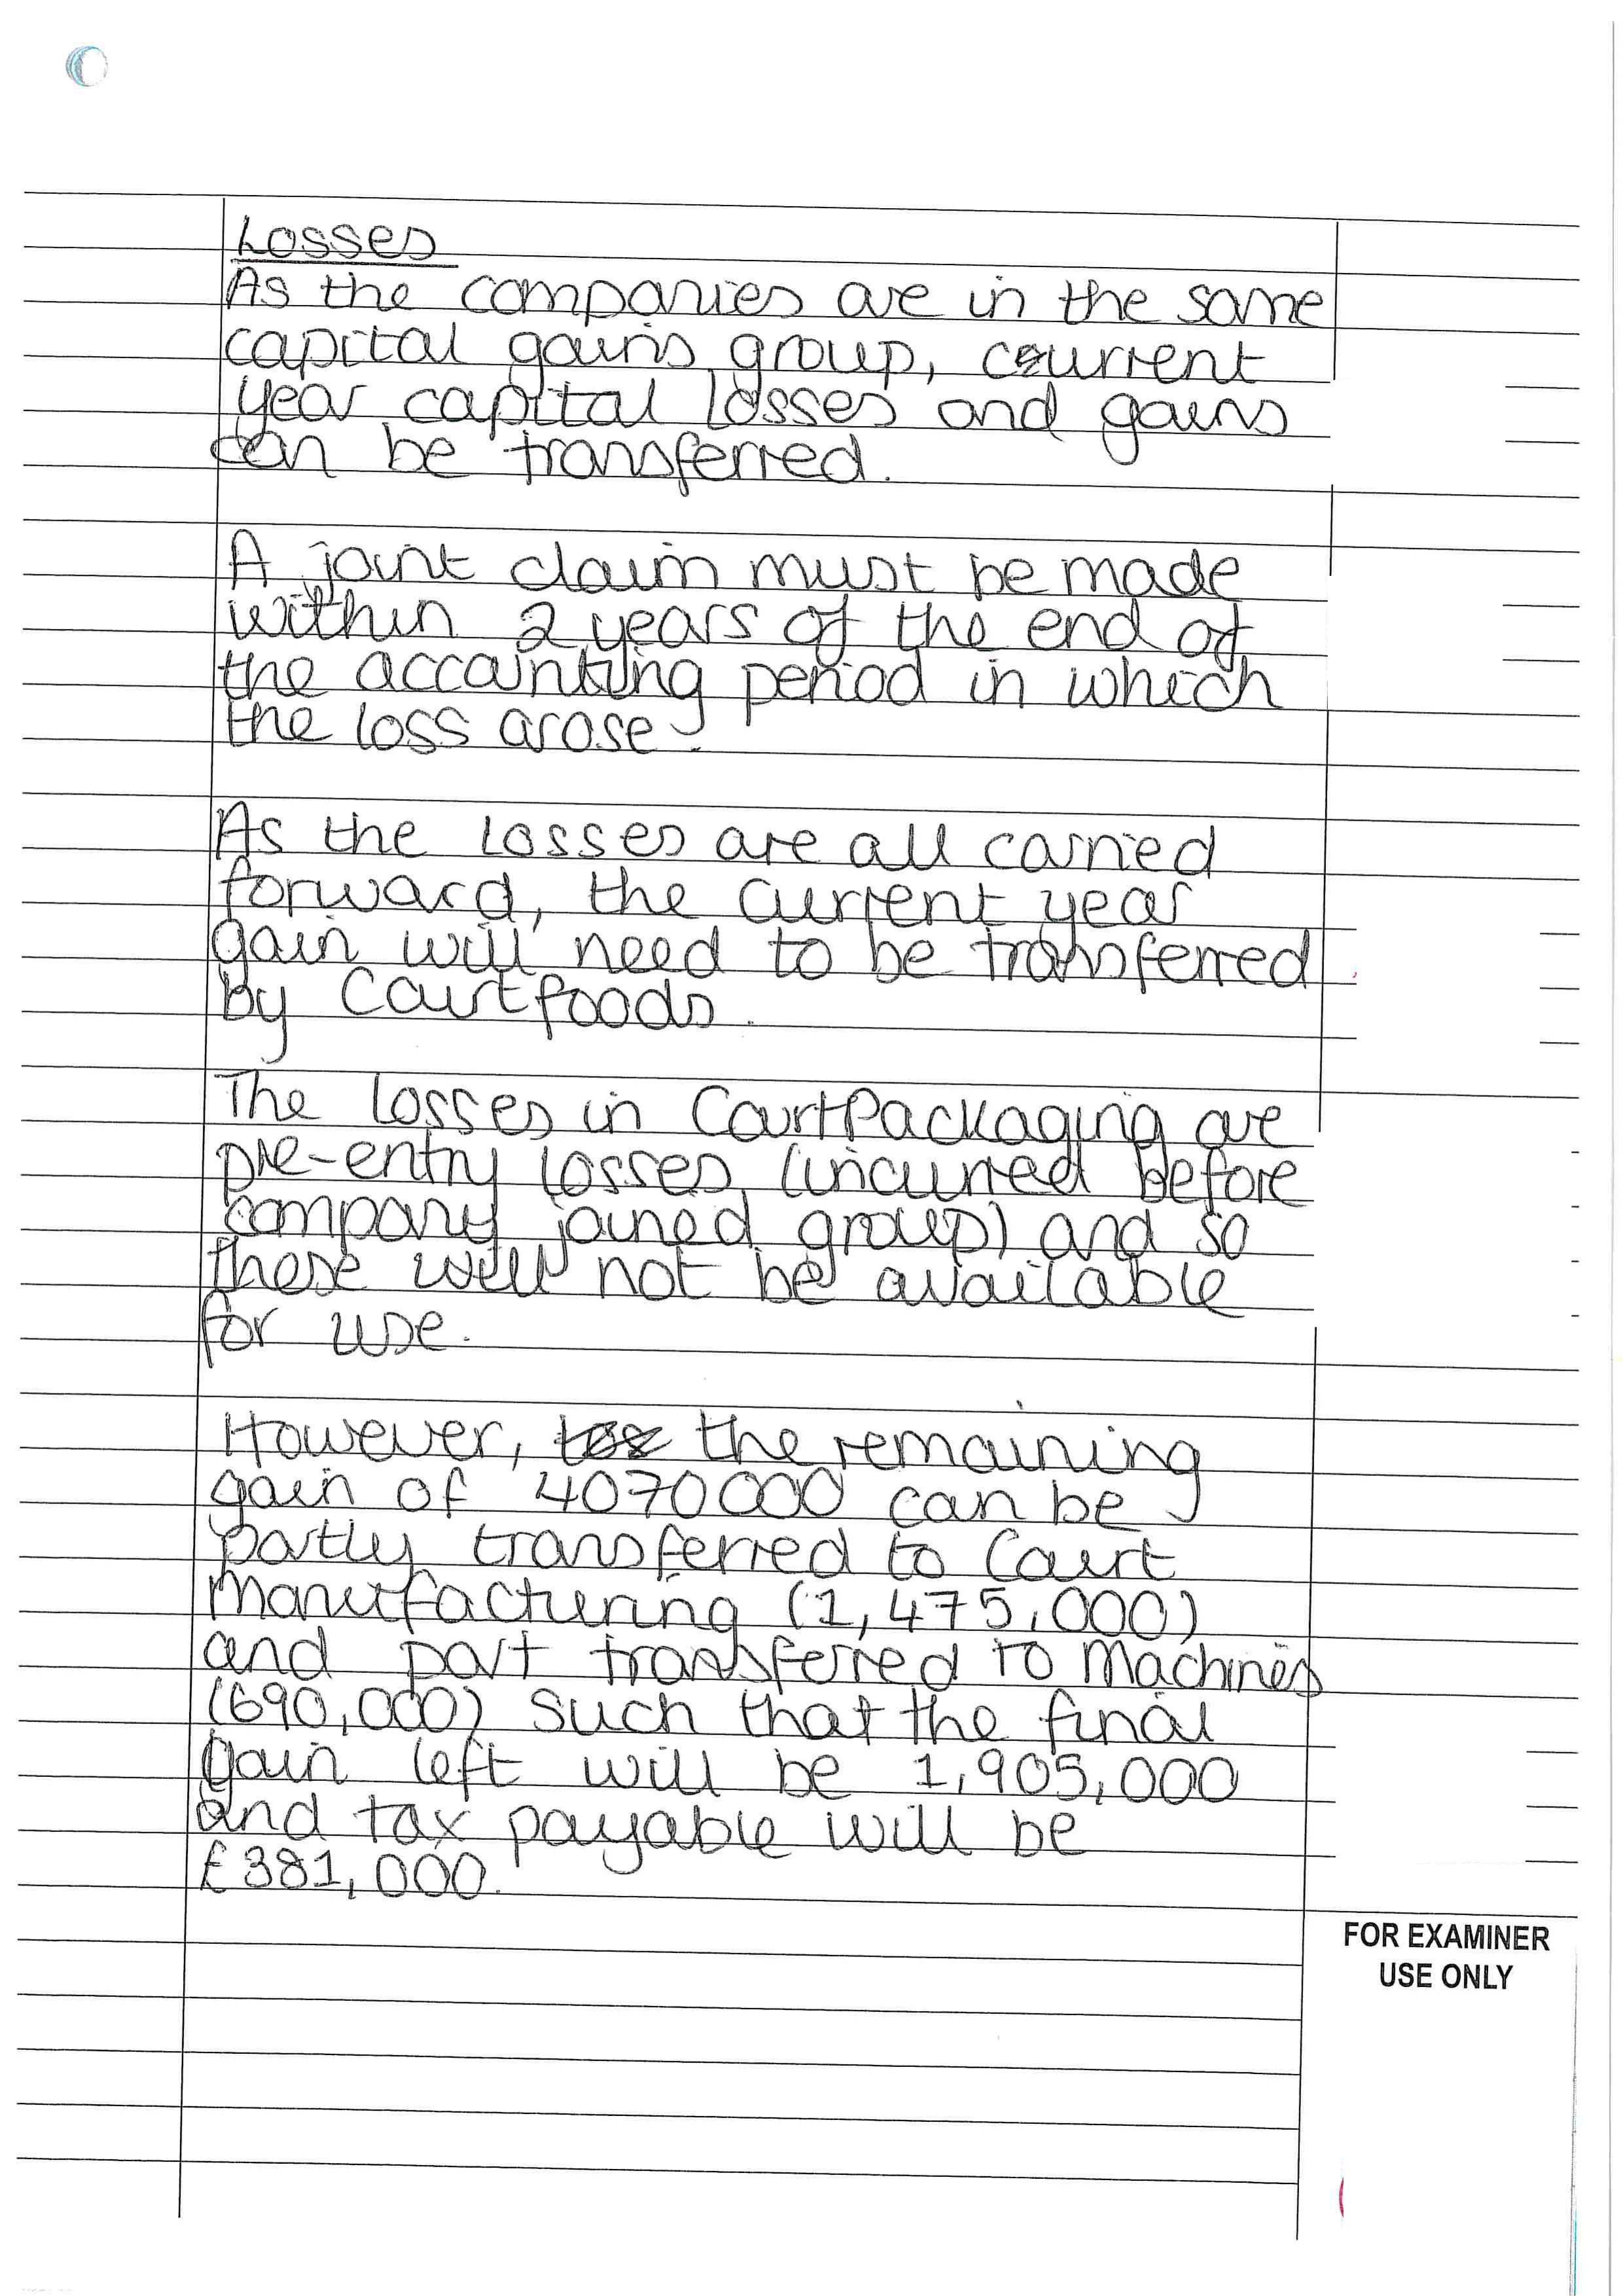 Losses
As the companies are in the same
capital gains group, current
year capital losses and gains
can be transferred.
A joint claim must be made
within 2 years of the end of
the accounting period in which
the loss arose.
As the losses are all carried
forward, the current year
gain will need to be transferred
by Courtfoods.
The losses in CourtPackaging are
pre-entry losses (incurred before
company joined group) and so
these will not be available
for use.
However, the remaining
gain of 4070000 can be
partly transferred to Court
Manufacturing (1,475,000)
and part transferred to Machines
(690,000) such that the final
gain left will be 1,905,000
and tax payable will be
£381,000.
FOR EXAMINER
USE ONLY